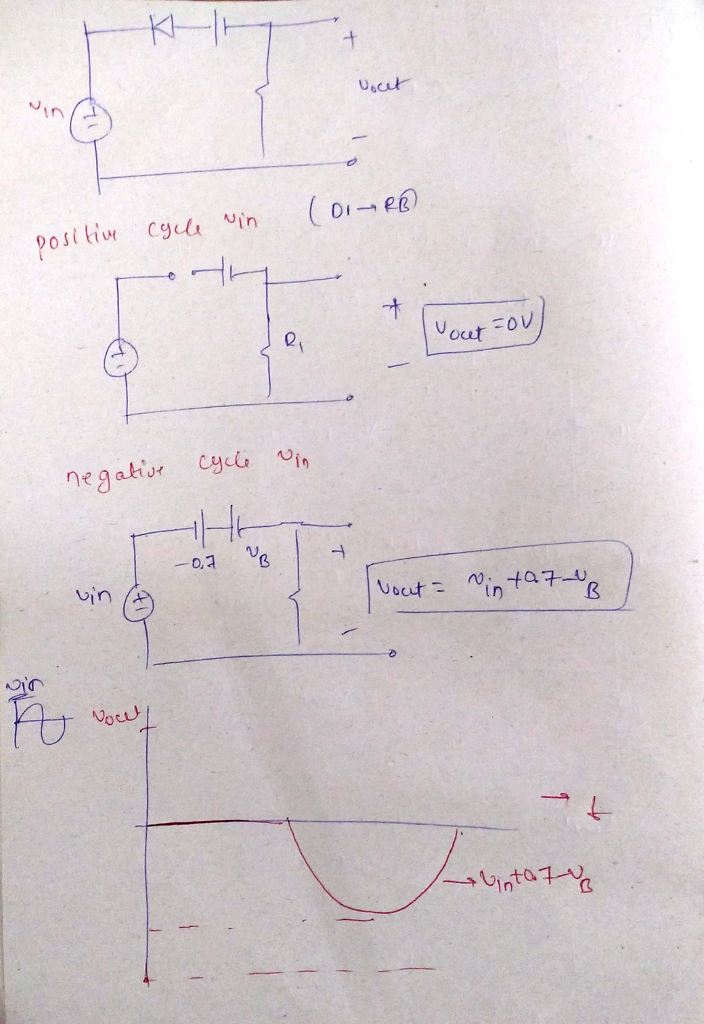 +
vin
vout
-
positive cycle vin (D1→RB)
+
R1
Vout = 0V
-
negative cycle vin
-0.7 vB +
vin
Vout = vin+0.7-vB
-
vin
Vout
→ t
→ vin+0.7-vB